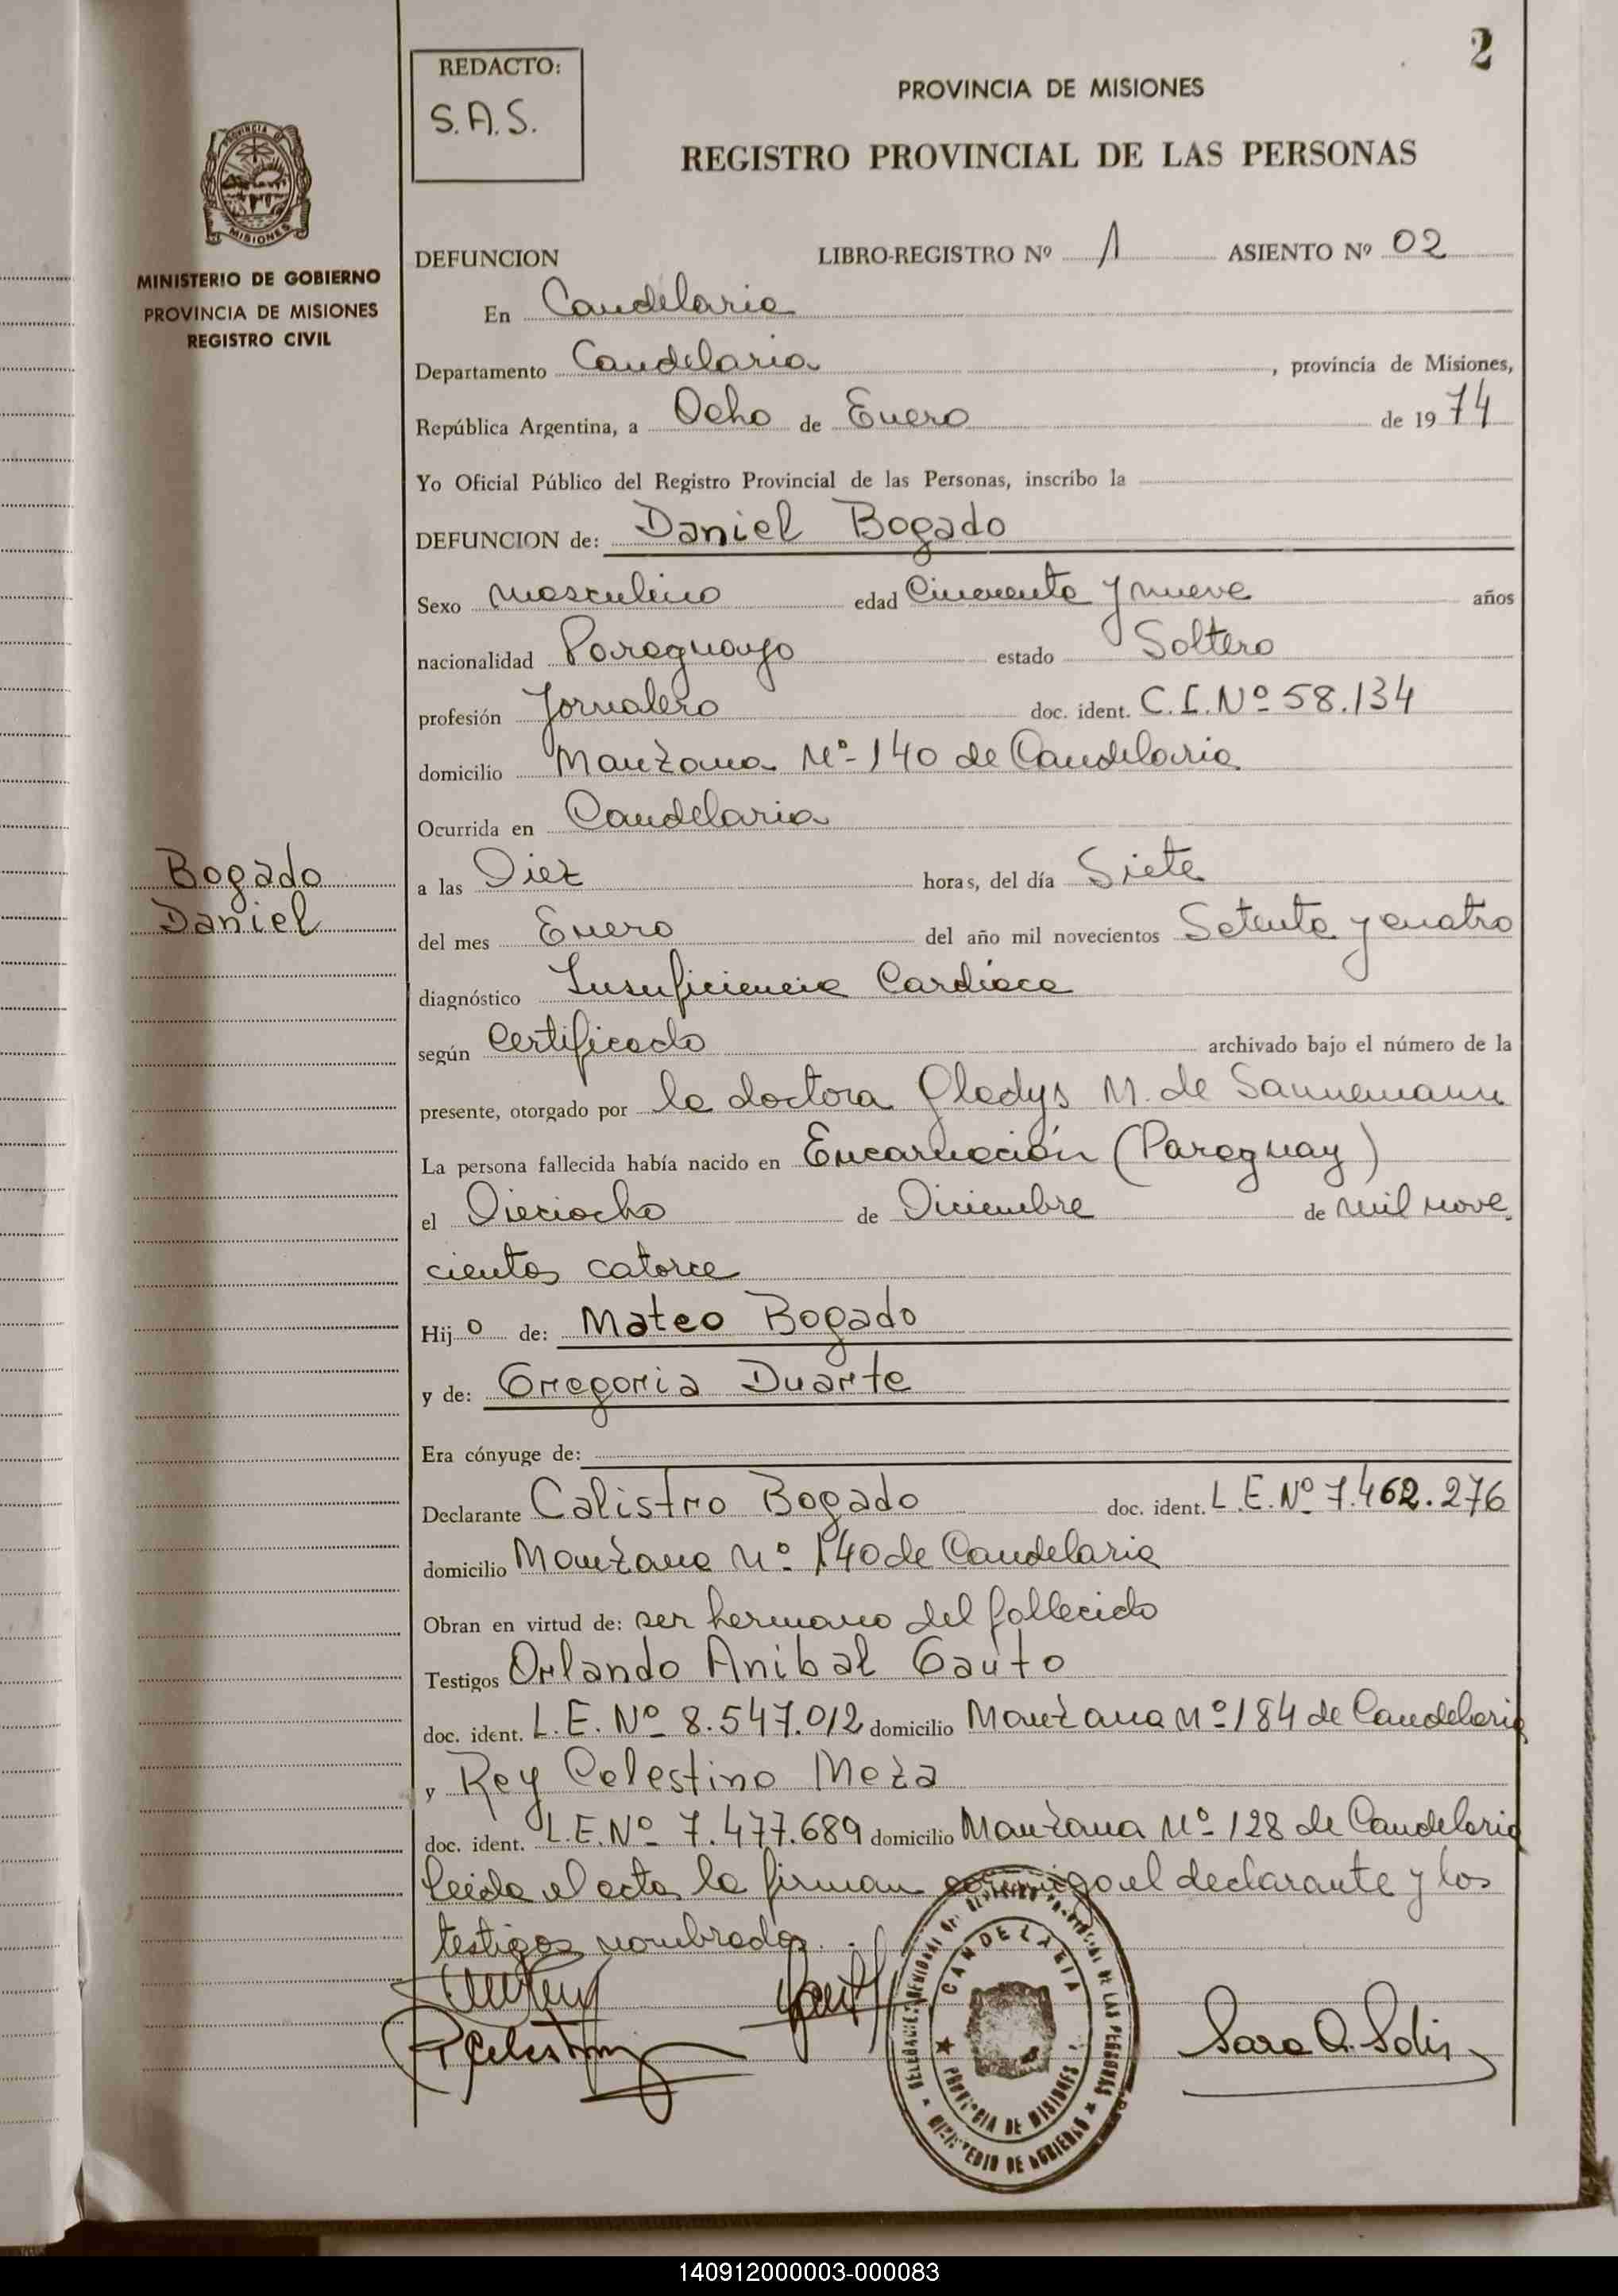 2
REDACTO:
S.A.S.
PROVINCIA DE MISIONES
REGISTRO PROVINCIAL DE LAS PERSONAS
MISIONES
MINISTERIO DE GOBIERNO
PROVINCIA DE MISIONES
REGISTRO CIVIL
Bogado
Daniel
DEFUNCION LIBRO-REGISTRO Nº 1 ASIENTO Nº 02
En Candelaria
Departamento Candelaria, provincia de Misiones,
República Argentina, a Ocho de Enero de 1974
Yo Oficial Público del Registro Provincial de las Personas, inscribo la
DEFUNCION de: Daniel Bogado
Sexo masculino edad Cincuenta y nueve años
nacionalidad Paraguayo estado Soltero
profesión Jornalero doc. ident. C.I. Nº 58.134
domicilio Manzana Nº 140 de Candelaria
Ocurrida en Candelaria
a las Diez horas, del día Siete
del mes Enero del año mil novecientos Setenta y cuatro
diagnóstico Insuficiencia Cardíaca
según Certificado archivado bajo el número de la
presente, otorgado por la doctora Gladys M. de Sannemann
La persona fallecida había nacido en Encarnación (Paraguay)
el Dieciocho de Diciembre de mil nove
cientos catorce
Hijo de: Mateo Bogado
y de: Gregoria Duarte
Era cónyuge de:
Declarante Calistro Bogado doc. ident. L.E. Nº 7.462.276
domicilio Manzana Nº 140 de Candelaria
Obran en virtud de: ser hermano del fallecido
Testigos Orlando Anibal Gauto
doc. ident. L.E. Nº 8.547.012 domicilio Manzana Nº 184 de Candelaria
y Rey Celestino Meza
doc. ident. L.E. Nº 7.477.689 domicilio Manzana Nº 128 de Candelaria
Leida el acta la firman conmigo el declarante y los
testigos nombrados.
CANDELARIA
PROVINCIA DE MISIONES
MINISTERIO DE GOBIERNO
Sara A. Solis
140912000003-000083